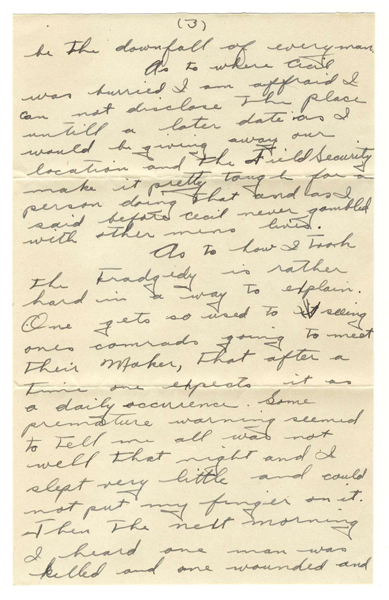 (3)
be the downfall of everyman
As to where Cecil
was burried I am affraid I
can not disclose the place
untill a later date as I
would be giving away our
location and the Field Security
make it pretty tough for a
person doing that and as I
said before Cecil never gambled
with other mens lives.
As to how I took
the tradgedy is rather
hard in a way to explain.
One gets so used to seeing
ones comrads going to meet
their Maker, that after a
time one expects it as
a daily occurrence. Some
premature warning seemed
to tell me all was not
well that night and I
slept very little and could
not put my finger on it.
Then the nett morning
I heard one man was
killed and one wounded and